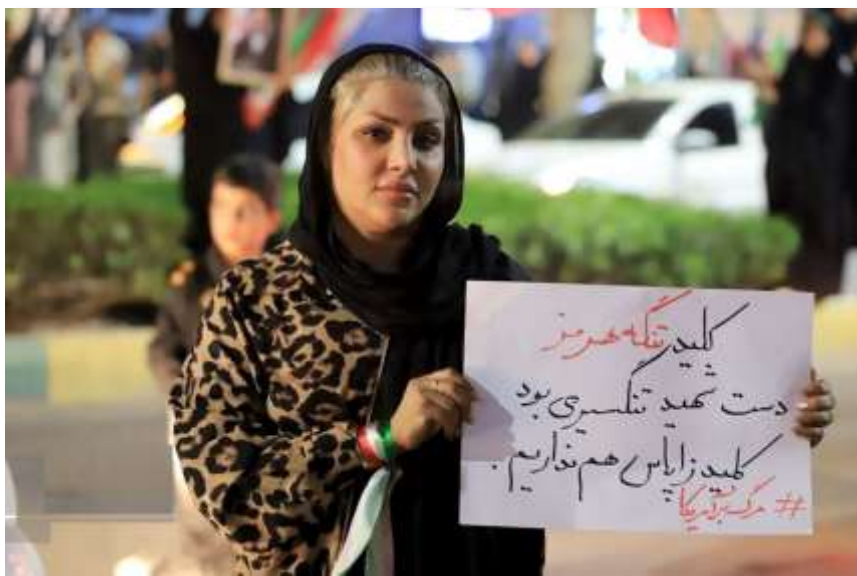 کلید تنگه هرمز
دست شهید تنگسیری بود
کلید زاپاس هم نداریم.
## مرگ بر آمریکا